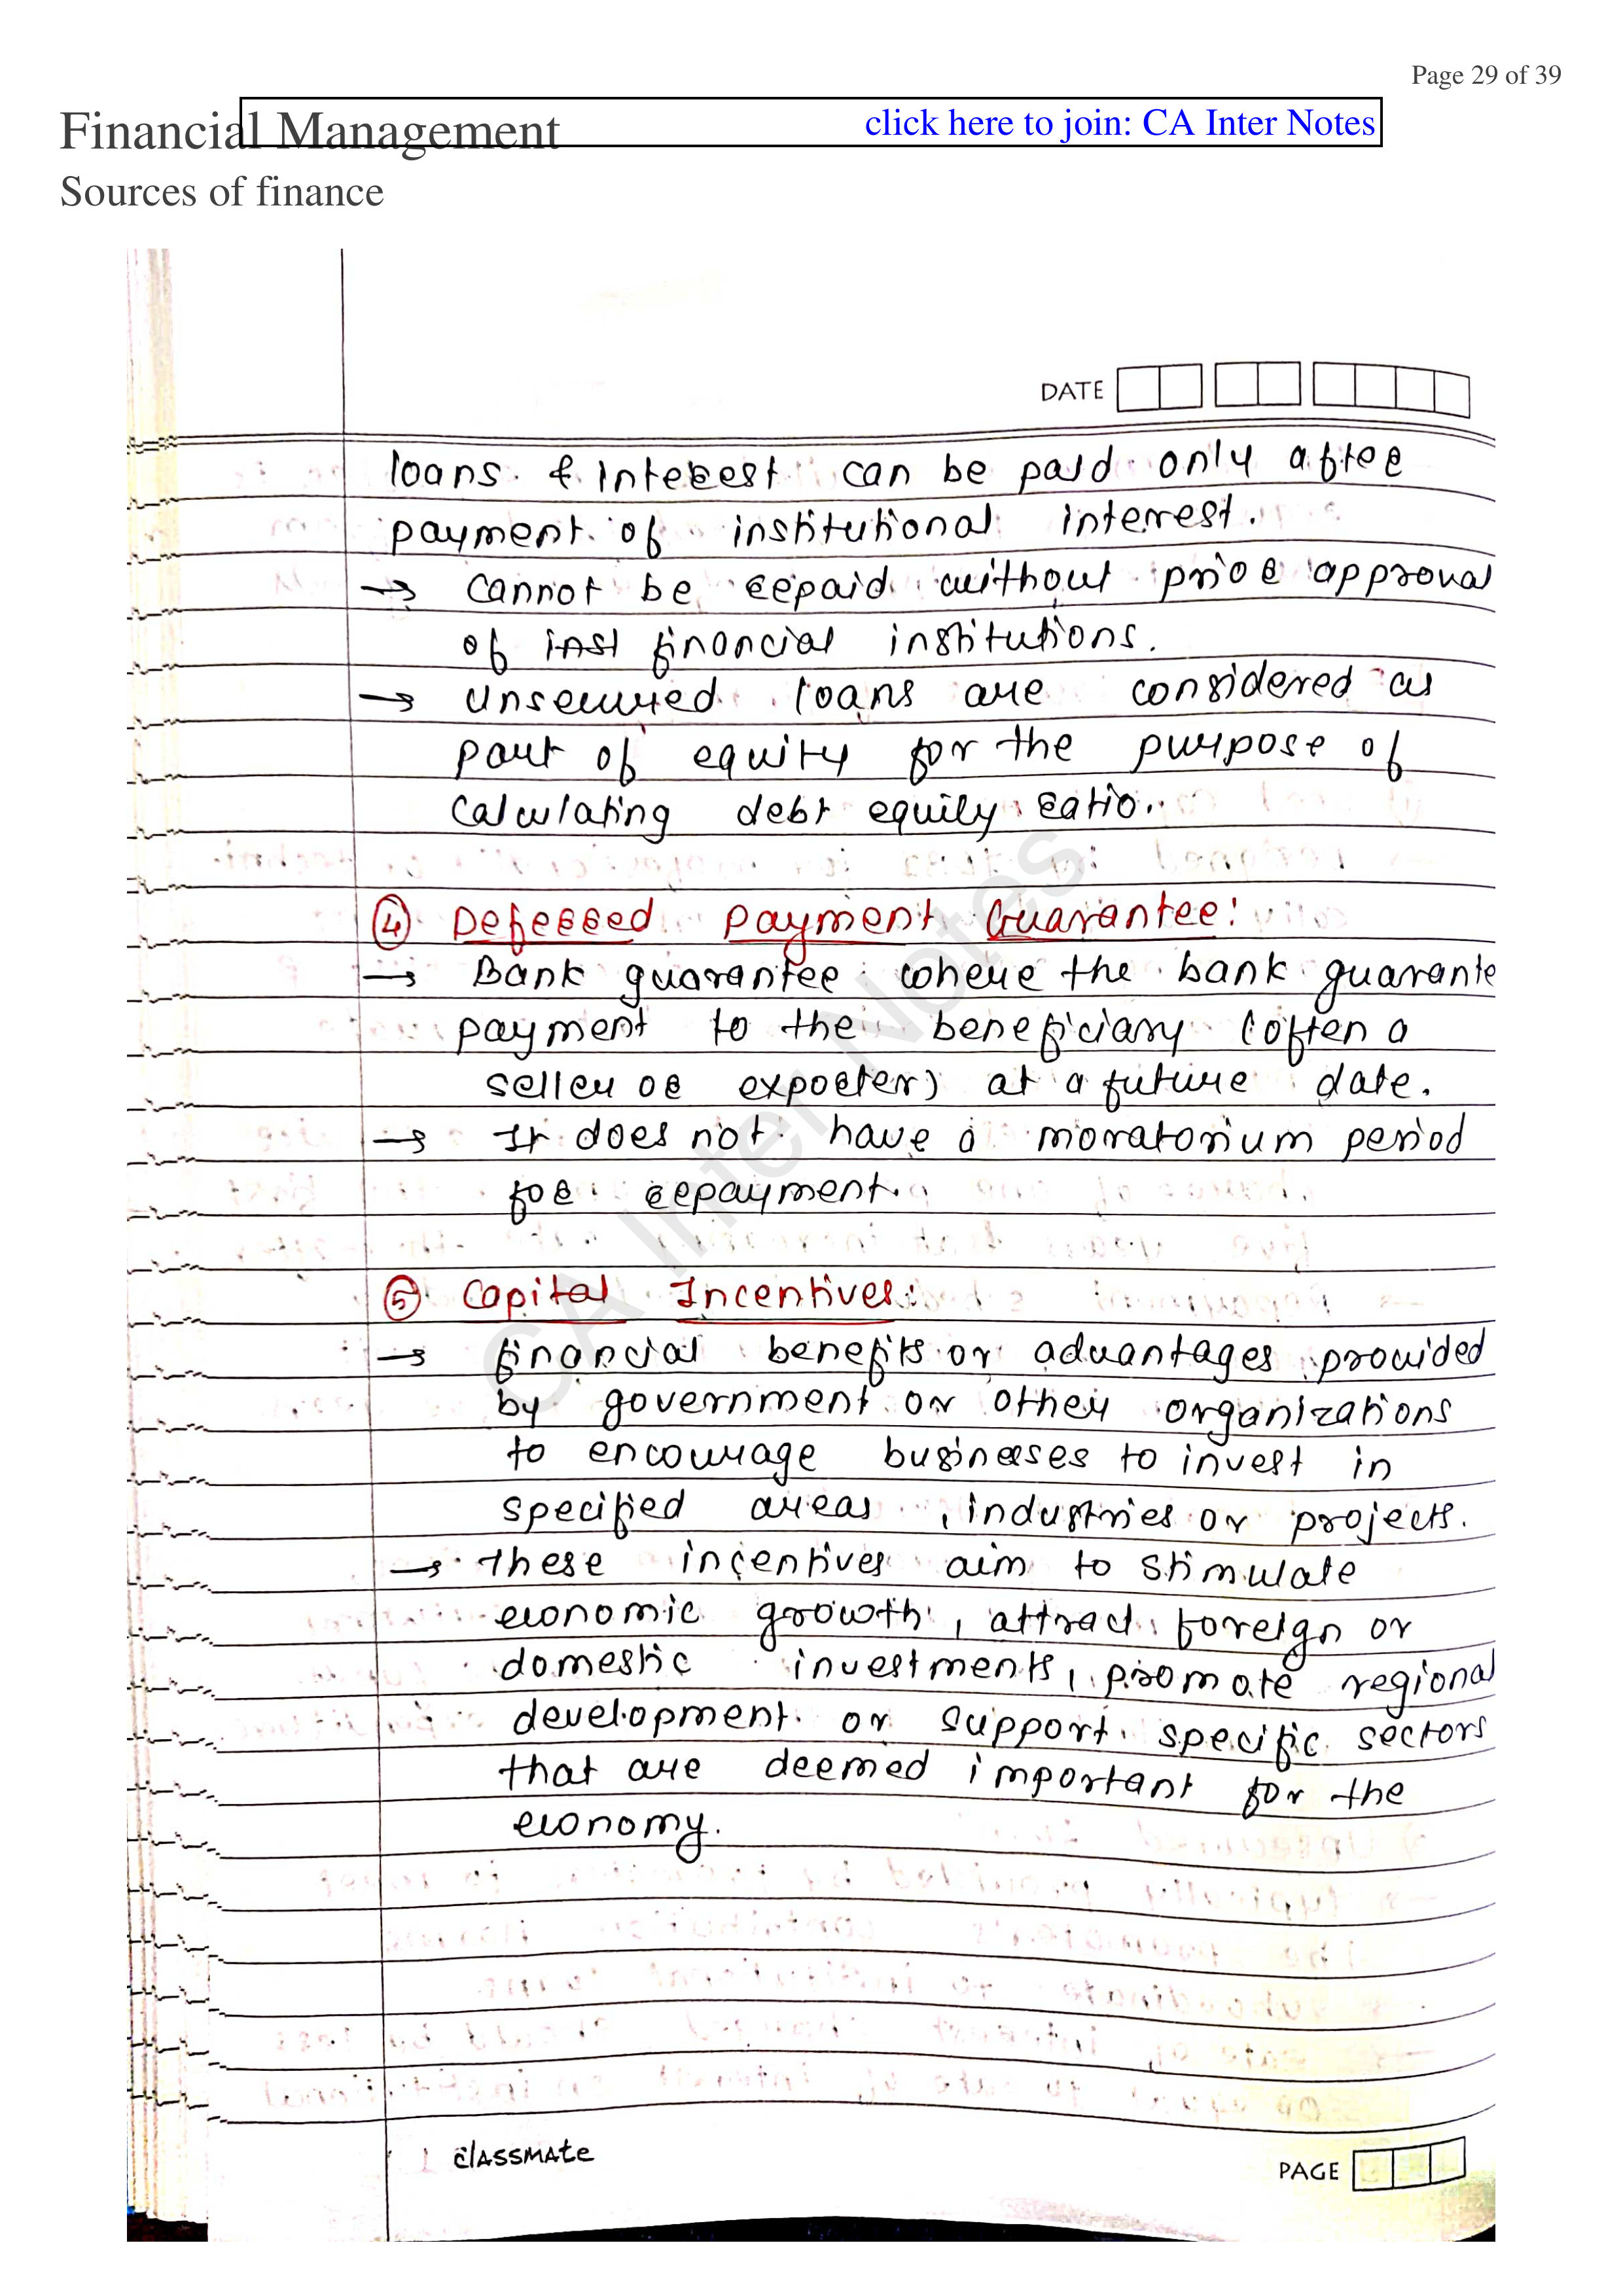 Page 29 of 39
Financial Management
click here to join: CA Inter Notes
Sources of finance
DATE
loans & interest can be paid only after
payment of institutional interest.
→ Cannot be repaid without prior approval
of inst financial institutions.
→ Unsecured loans are considered as
part of equity for the purpose of
calculating debt equity ratio.
④ Deferred Payment Guarantee:
→ Bank guarantee where the bank guarante
payment to the beneficiary (often a
seller or exporter) at a future date.
→ It does not have a moratorium period
for repayment.
⑤ Capital Incentives:
→ financial benefits or advantages provided
by government or other organizations
to encourage businesses to invest in
specified areas, industries or projects.
→ these incentives aim to stimulate
economic growth, attract foreign or
domestic investments, promote regional
development or support specific sectors
that are deemed important for the
economy.
CA Inter Notes
classmate
PAGE